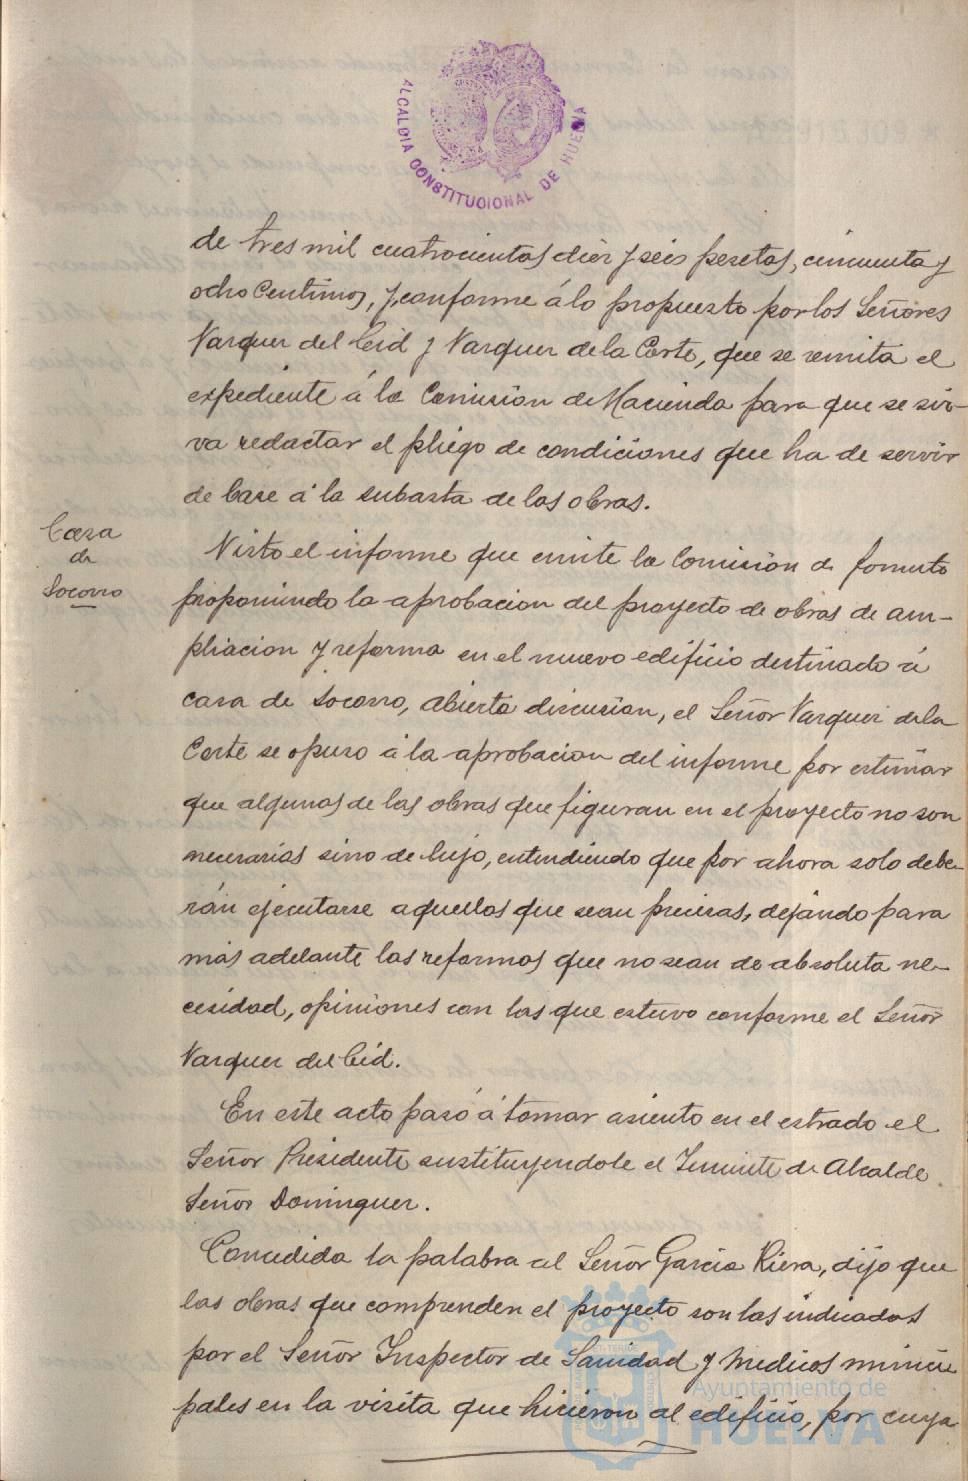 ALCALDIA CONSTITUCIONAL DE HUELVA
de tres mil cuatrocientas diez y seis pesetas, cincuenta y
ocho centimos, y, conforme á lo propuesto por los Señores
Vazquez del Cid y Vazquez de la Corte, que se remita el
expediente á la Comision de Hacienda para que se sir-
va redactar el pliego de condiciones que ha de servir
de base á la subasta de las obras.
Casa
de
Socorro
Visto el informe que emite la Comision de fomento
proponiendo la aprobacion del proyecto de obras de am-
pliacion y reforma en el nuevo edificio destinado á
casa de Socorro, abierta discusion, el Señor Vazquez de la
Corte se opuso á la aprobacion del informe por estimar
que algunas de las obras que figuran en el proyecto no son
necesarias sino de lujo, entendiendo que por ahora solo debe-
rán ejecutarse aquellas que sean precisas, dejando para
más adelante las reformas que no sean de absoluta ne-
cesidad, opiniones con las que estuvo conforme el Señor
Vazquez del Cid.
En este acto pasó á tomar asiento en el estrado el
Señor Presidente sustituyendole el Teniente de Alcalde
Señor Dominguez.
Concedida la palabra al Señor Garcia Riera, dijo que
las obras que comprenden el proyecto son las indicadas
por el Señor Inspector de Sanidad y Medicos munici
pales en la visita que hicieron al edificio, por cuya
Ayuntamiento de
HUELVA